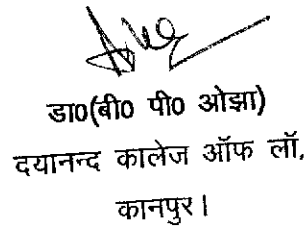 डा0(बी0 पी0 ओझा)
दयानन्द कालेज ऑफ लॉ,
कानपुर।